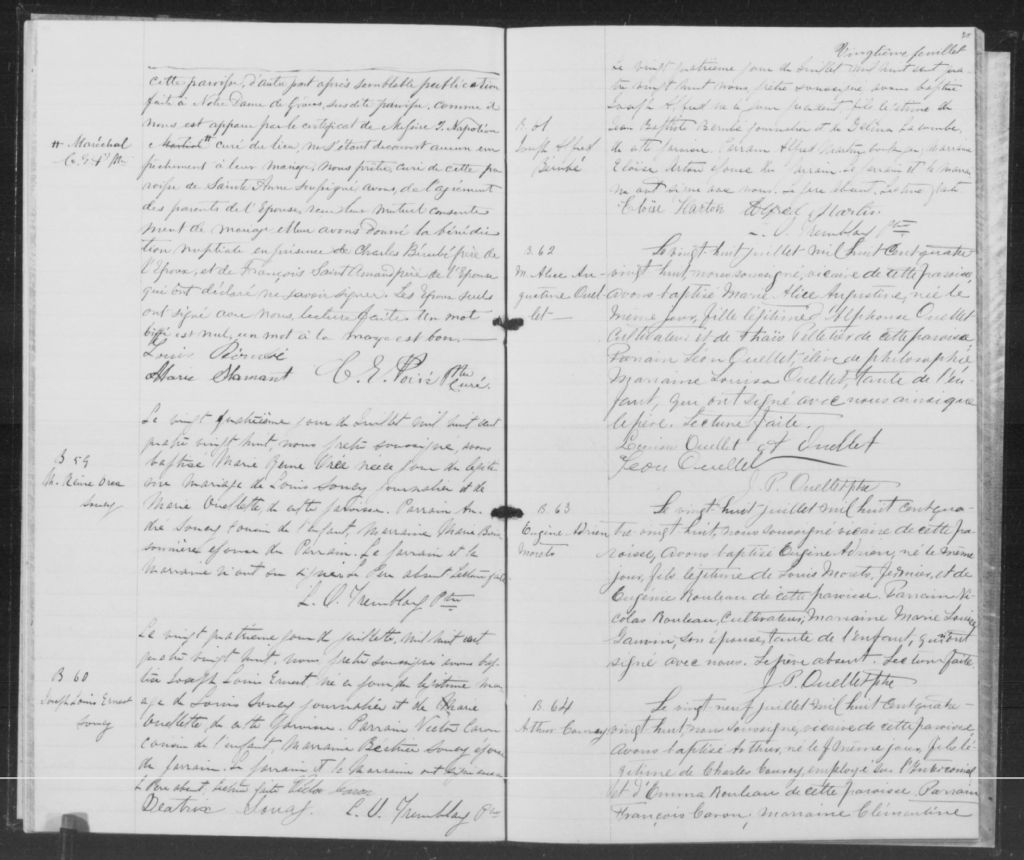 cette paroisse, d'autre part après semblable publication
faite à Notre Dame de Grâces, susdite paroisse, comme il
nous est apparu par le certificat de Messire J. Napoléon
# Maréchal
C. E. P. Ptre
Martial # curé du lieu, ne s'étant découvert aucun em
pêchement à leur mariage, Nous prêtre curé de cette pa
roisse de Sainte Anne soussigné avons, de l'agrément
des parents de l'Epouse, reçu leur mutuel consente
ment de mariage et leur avons donné la bénédic
tion nuptiale en présence de Charles Bérubé père de
l'Epoux, et de François Saint Amand père de l'Epouse
qui ont déclaré ne savoir signer. Les Epoux seuls
ont signé avec nous, lecture faite. Un mot
biffé est nul, un mot à la marge est bon.
Louis Bérubé
Marie Stamant C. E. Poiré Ptre Curé.
B 59
M. Reine Orea
Soucy
Le vingt quatrième jour de Juillet mil huit cent
quatre vingt huit, nous prêtre soussigné, avons
baptisé Marie Reine Oréa née ce jour du légiti
me mariage de Louis Soucy journalier et de
Marie Ouellette, de cette paroisse. Parrain An
dré Soucy cousin de l'enfant, Marraine Marie
épouse du Parrain. Le parrain et la
marraine n'ont su signer. Le Père absent Lecture faite
L. O. Tremblay Ptre
B 60
Joseph Louis Ernest
Soucy
Le vingt quatrième jour de juillette, mil huit cent
quatre vingt huit, nous prêtre soussigné avons bap
tisé Joseph Louis Ernest né ce jour, du légitime mari
age de Louis Soucy journalier et de Marie
Ouellette de cette paroisse. Parrain Victor Caron
cousin de l'enfant, Marraine Beatrice Soucy épouse
du parrain. Le parrain et la Marraine ont signé avec
Le Père absent, lecture faite Victor Caron
Beatrice Soucy. L. O. Tremblay Ptre
20
Vingtième feuillet
B. 61
Joseph Alfred
Bérubé
Le vingt quatrième jour de Juillet mil huit cent qua
tre vingt huit nous, prêtre soussigné avons baptisé
Joseph Alfred né le jour précédent fils légitime de
Jean Baptiste Bérubé journalier et de Délina Lacombe,
de cette paroisse. Parrain Alfred Martin, marraine
Eloïse Harton épouse du Parrain. Le parrain et la marrai
ne ont signé avec nous. Le père absent. Lecture faite
Eloïse Harton Alfred Martin
L. O. Tremblay Ptre
B. 62
M. Alice Au
gustine Ouel
let
Le vingt huit juillet mil huit cent quatre
vingt huit, nous soussigné, vicaire de cette paroisse,
avons baptisé Marie Alice Augustine, née le
même jour, fille légitime d'Alphonse Ouellet
Cultivateur et de Thaïs Pelletier de cette paroisse
Parrain Léon Ouellet, élève de philosophie
Marraine Louisa Ouellet, tante de l'en
fant, qui ont signé avec nous ainsi que
le père. Lecture faite.
Louisa Ouellet A Ouellet
Léon Ouellet
J. P. Ouellet ptre
B. 63
Eugène Adrien
Moreto
Le vingt huit juillet mil huit cent qua
tre vingt huit, nous soussigné vicaire de cette pa
roisse, avons baptisé Eugène Adrien, né le même
jour, fils légitime de Louis Moreto, fermier, et de
Eugénie Rouleau de cette paroisse. Parrain Ni
colas Rouleau, Cultivateur, Marraine Marie Louise
son épouse, tante de l'enfant, qui ont
signé avec nous. Le père absent. Lecture faite
J. P. Ouellet ptre
B. 64
Arthur
Le vingt neuf juillet mil huit cent quatre-
vingt huit, nous soussigné, vicaire de cette paroisse
avons baptisé Arthur, né le même jour, fils lé
gitime de Charles employé sur l'Intercolonial
et d'Emma Rouleau de cette paroisse. Parrain
François Caron, Marraine Clémentine